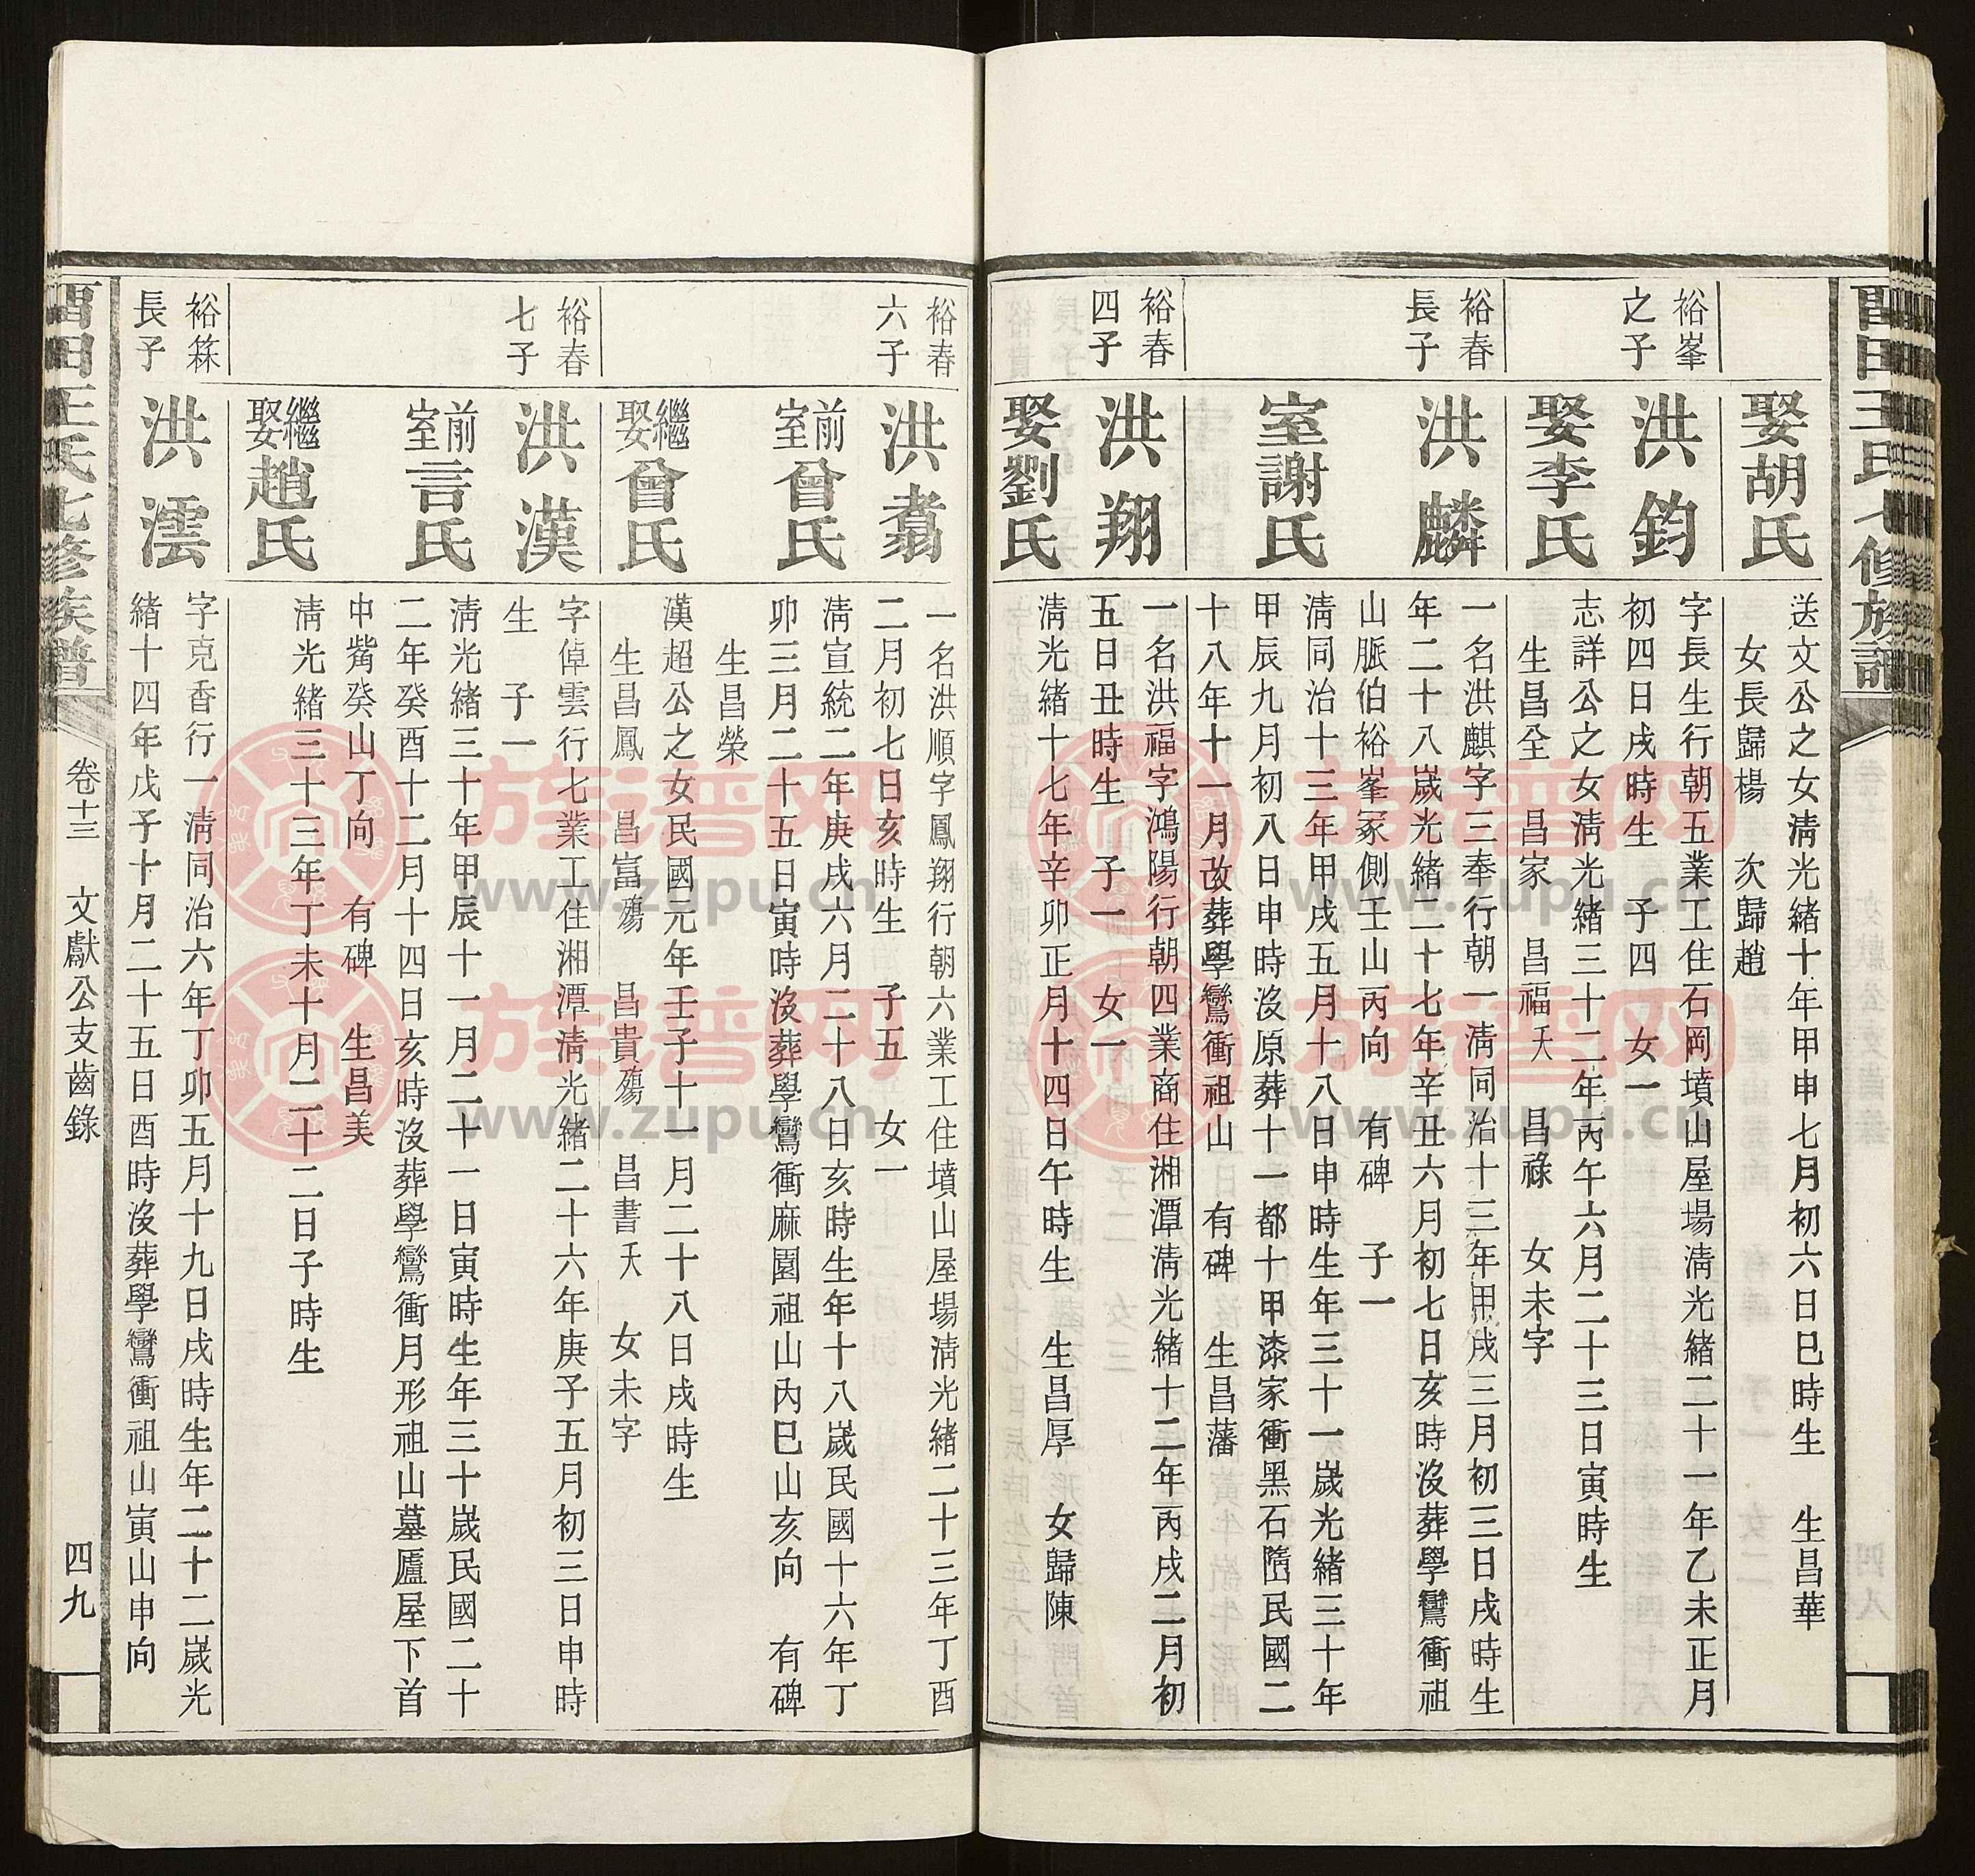 娶胡氏
送文公之女淸光緒十年甲申七月初六日巳時生 生昌華
女長歸楊 次歸趙
裕峯
之子
洪鈞
字長生行朝五業工住石岡墳山屋場淸光緒二十一年乙未正月
初四日戌時生 子四 女一
娶李氏
志詳公之女淸光緒三十二年丙午六月二十三日寅時生
生昌全 昌家 昌福夭 昌祿 女未字
裕春
長子
洪麟
一名洪麒字三奉行朝一淸同治十三年甲戌三月初三日戌時生
年二十八嵗光緒二十七年辛丑六月初七日亥時沒葬學鸞衝祖
山脈伯裕峯冢側壬山丙向 有碑 子一
室謝氏
淸同治十三年甲戌五月十八日申時生年三十一嵗光緒三十年
甲辰九月初八日申時沒原葬十一都十甲漆家衝黑石𡺲民國二
十八年十一月改葬學鸞衝祖山 有碑 生昌藩
裕春
四子
洪翔
一名洪福字鴻陽行朝四業商住湘潭淸光緒十二年丙戌二月初
五日丑時生 子一 女一
娶劉氏
淸光緒十七年辛卯正月十四日午時生 生昌厚 女歸陳
裕春
六子
洪翥
一名洪順字鳳翔行朝六業工住墳山屋場淸光緒二十三年丁酉
二月初七日亥時生 子五 女一
前室曾氏
淸宣統二年庚戌六月二十八日亥時生年十八嵗民國十六年丁
卯三月二十五日寅時沒葬學鸞衝麻園祖山內巳山亥向 有碑
生昌榮
繼娶曾氏
漢超公之女民國元年壬子十一月二十八日戌時生
生昌鳳 昌富殤 昌貴殤 昌書夭 女未字
裕春
七子
洪漢
字倬雲行七業工住湘潭淸光緒二十六年庚子五月初三日申時
生 子一
前室言氏
淸光緒三十年甲辰十一月二十一日寅時生年三十嵗民國二十
二年癸酉十二月十四日亥時沒葬學鸞衝月形祖山墓廬屋下首
中觜癸山丁向 有碑 生昌美
繼娶趙氏
淸光緒三十三年丁未十月二十二日子時生
裕箖
長子
洪澐
字克香行一淸同治六年丁卯五月十九日戌時生年二十二嵗光
緒十四年戊子十月二十五日酉時沒葬學鸞衝祖山寅山申向
田王氏七修族譜
卷十三 文獻公支齒錄
四九
族譜网
www.zupu.cn
族譜网
www.zupu.cn
族譜网
www.zupu.cn
族譜网
www.zupu.cn